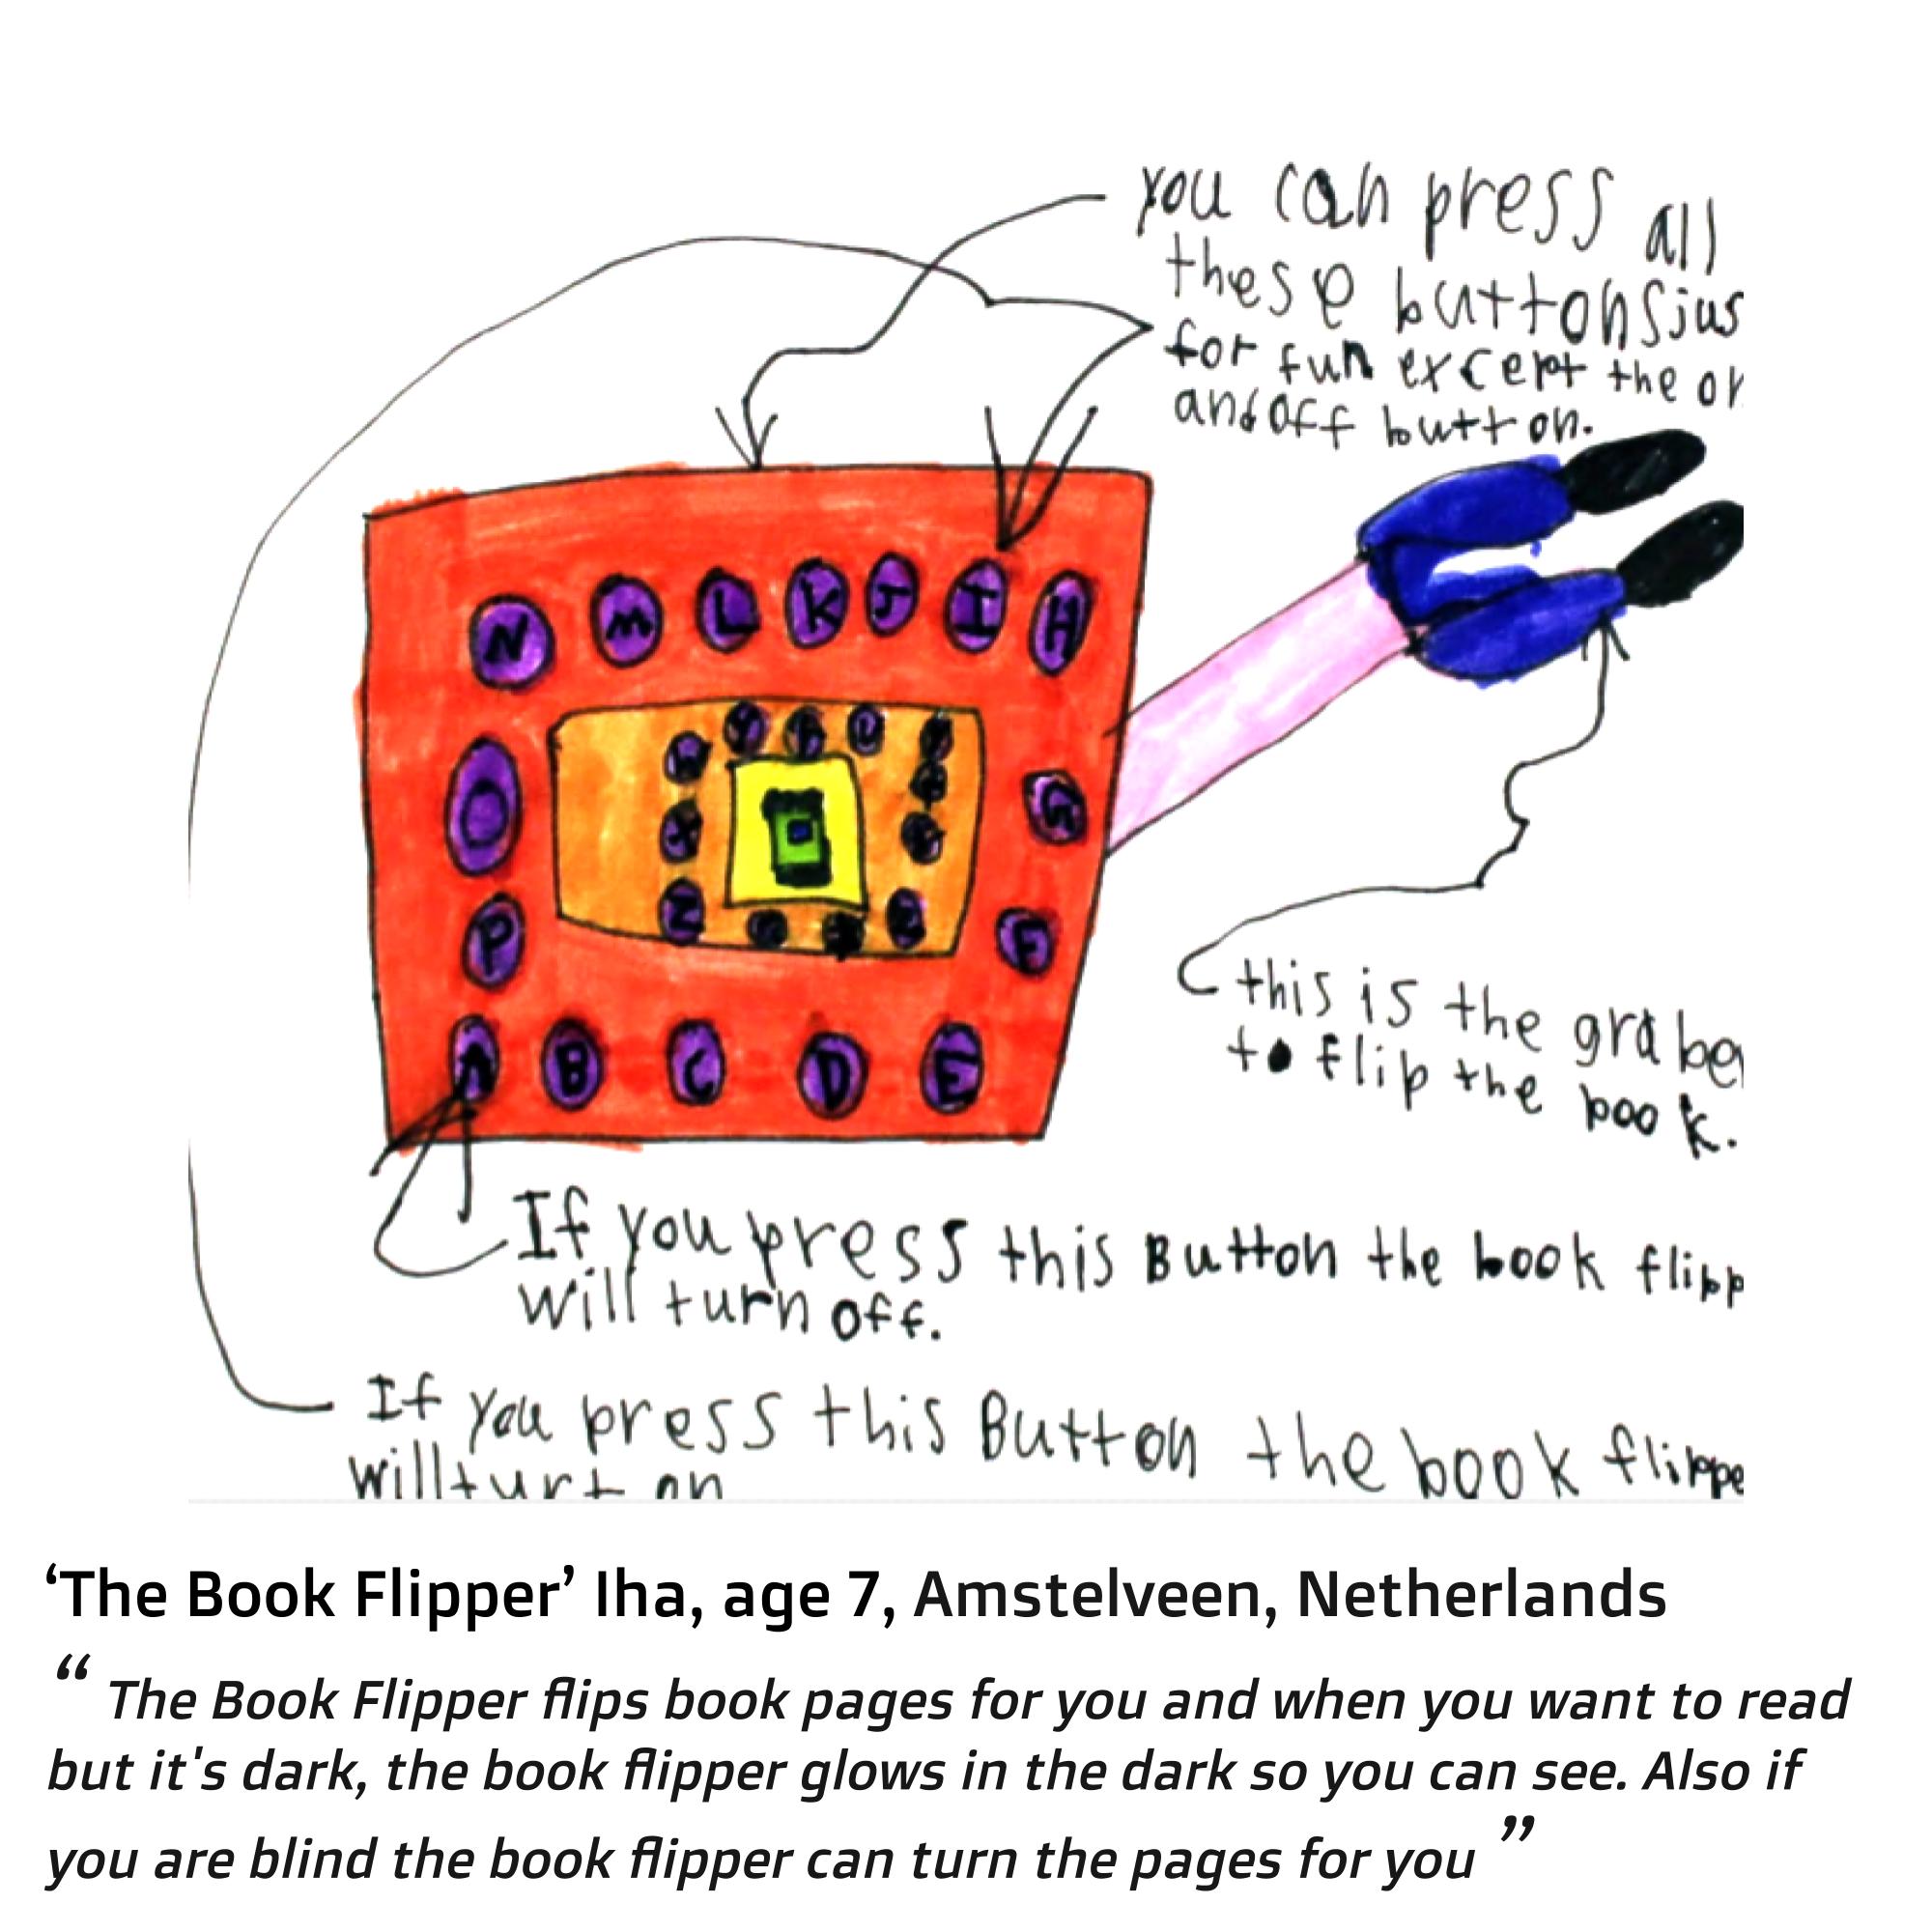 you can press all
these buttons jus
for fun except the on
and off button.
N M L K J I H
W Y
O X G
P Z F
A B C D E
this is the grabe
to flip the book.
If you press this Button the book flipp
will turn off.
If you press this Button the book flippe
will turt on
‘The Book Flipper’ Iha, age 7, Amstelveen, Netherlands
“ The Book Flipper flips book pages for you and when you want to read
but it's dark, the book flipper glows in the dark so you can see. Also if
you are blind the book flipper can turn the pages for you ”